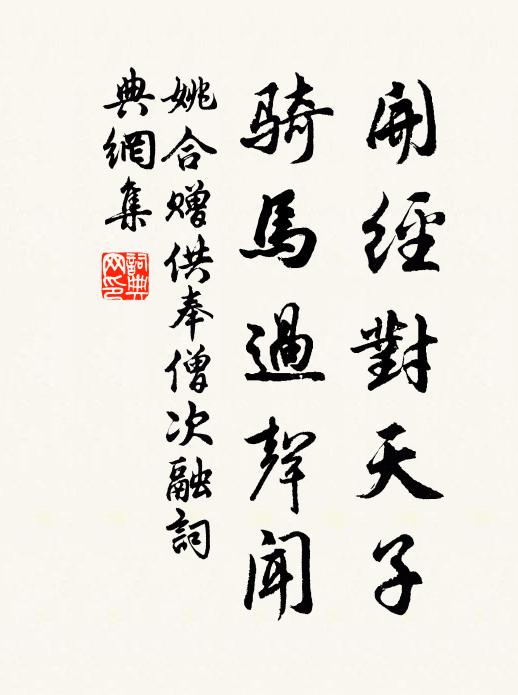 開經對天子
騎馬過聲聞
姚合赠供奉僧次融詞
典網集
詞典網印